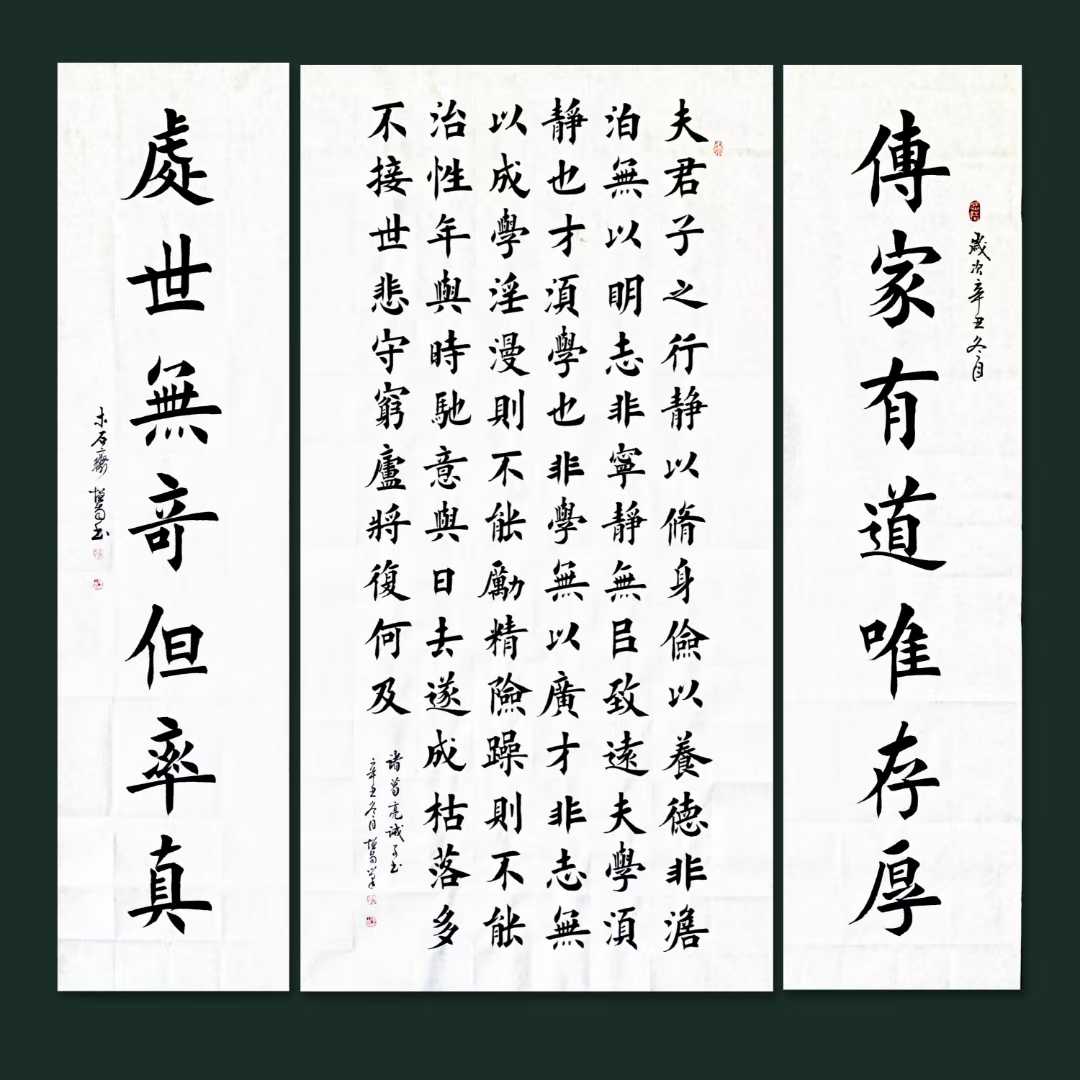 傳家有道唯存厚
歲次辛丑冬月
夫君子之行静以脩身儉以養德非澹
泊無以明志非寧靜無㠯致遠夫學湏
靜也才湏學也非學無以廣才非志無
以成學淫漫則不能勵精險躁則不能
治性年與時馳意與日去遂成枯落多
不接世悲守窮廬將復何及
諸葛亮誡子書
辛丑冬月
處世無奇但率真
木石齋